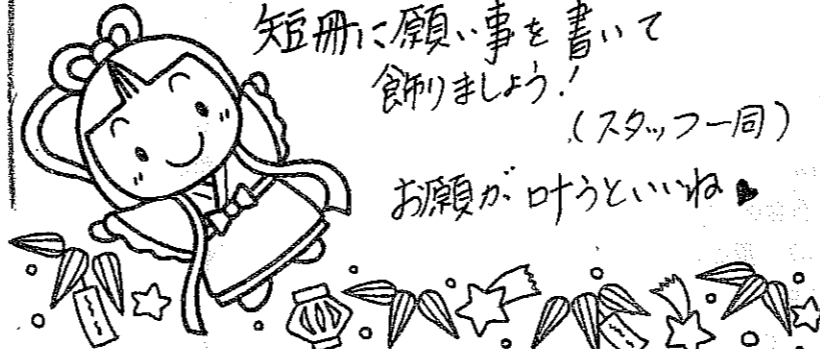 短冊に願い事を書いて
飾りましょう!
(スタッフ一同)
お願が叶うといいね♥